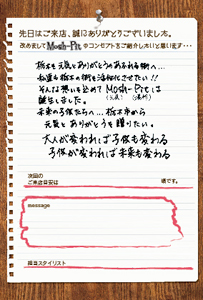 先日はご来店、誠にありがとうございました。
改めましてMosh-Pitのコンセプトをご紹介したいと思います…
栃木を元気とありがとうのあふれる街へ…
私達も栃木の街を活性化させたい!!
そんな想いを込めてMosh-Pitは
誕生しました。(元気)(場所)
未来の子供たちへ…栃木市から
元気とありがとうを贈りたい。
大人が変われば子供も変わる
子供が変われば未来も変わる
次回の
ご来店目安は
頃です。
message
担当スタイリスト